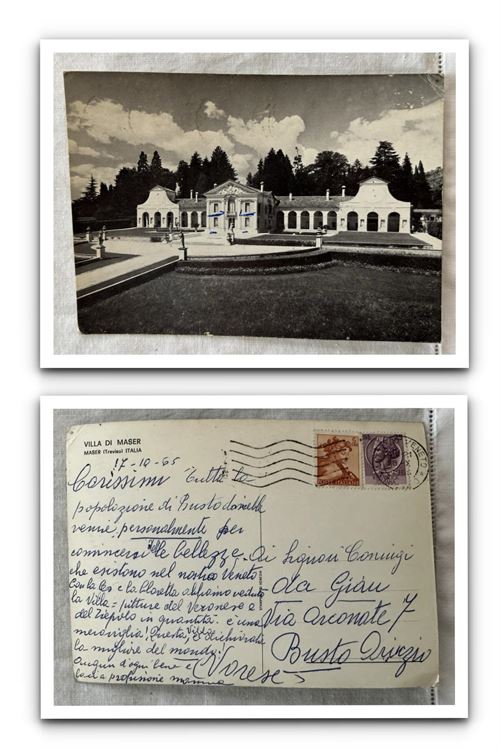 VILLA DI MASER
MASER (Treviso) ITALIA
17-10-65
Carissimi Tutta la
popolazione di Busto dovrebbe
venire personalmente per
convincersi delle bellezze
che esistono nel nostro Veneto.
Con la e la abbiamo veduto
la Villa = pitture del Veronese e
del Tiepolo in quantità. è una
meraviglia! Questa Villa è dichiarata
la migliore del mondo.
Auguri d'ogni bene e
baci a profusione mamma
Ai Signori Coniugi
da Giau
Via Arconate 7
Busto Arsizio
Varese
POSTE ITALIANE
VENETO